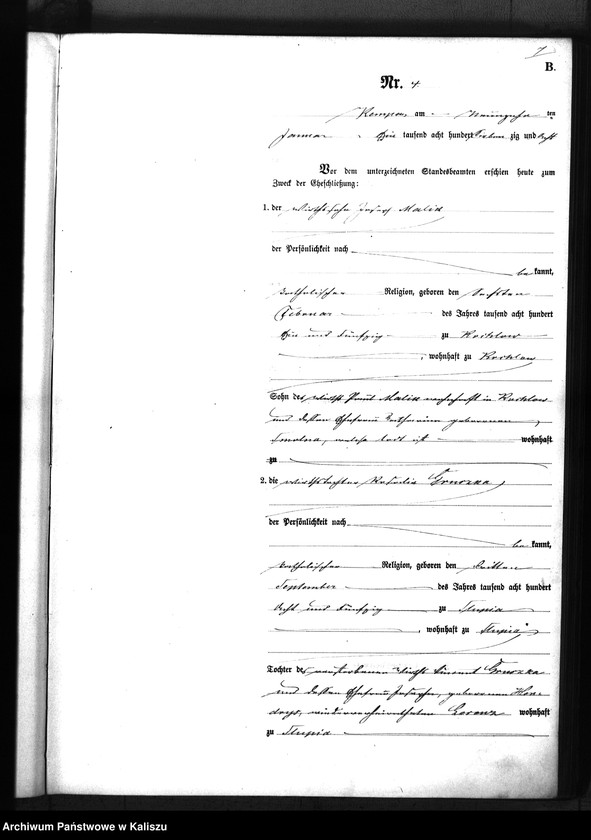 7
B.
Nr. 4
Kempen, am Neunzehn ten
Januar Ein tausend acht hundert zig und acht
Vor dem unterzeichneten Standesbeamten erschien heute zum
Zweck der Eheschließung:
1. der Wirthssohn Josef Malik
der Persönlichkeit nach
be kannt,
katholischer Religion, geboren den Sechsten
Februar des Jahres tausend acht hundert
Ein und Fünfzig zu
, wohnhaft zu
Sohn des Wirths Malik wohnhaft in
und dessen Ehefrau geborenen
Smolna, welche todt ist wohnhaft
zu
2. die Wirthstochter Rosalia Gruszka
der Persönlichkeit nach
be kannt,
katholischer Religion, geboren den Dritten
September des Jahres tausend acht hundert
Acht und Fünfzig zu Slupia
, wohnhaft zu Slupia
Tochter des verstorbenen Wirths Vincent Gruszka
und dessen Ehefrau geborenen
wiederverheiratheten Lorenz wohnhaft
zu Slupia
Archiwum Państwowe w Kaliszu